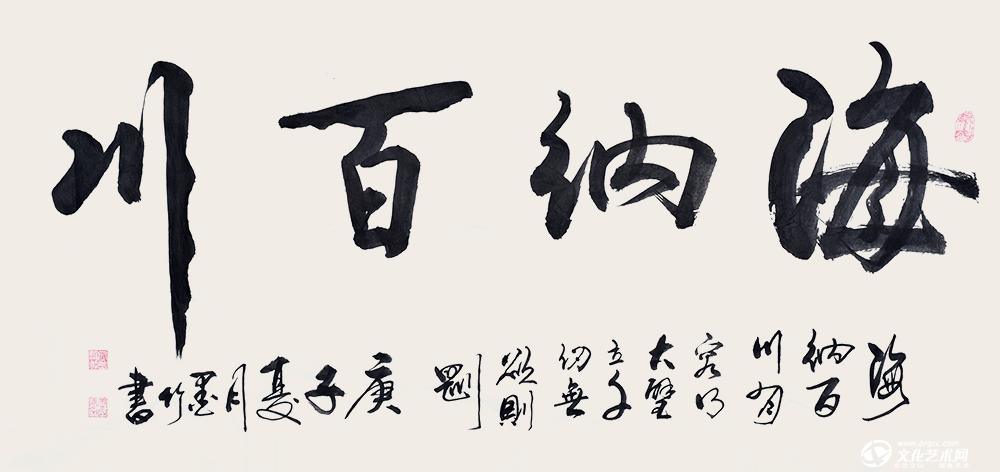 海納百川
海納百川有容乃大壁立千仞無欲則剛
庚子夏月墨竹書
文化艺术网